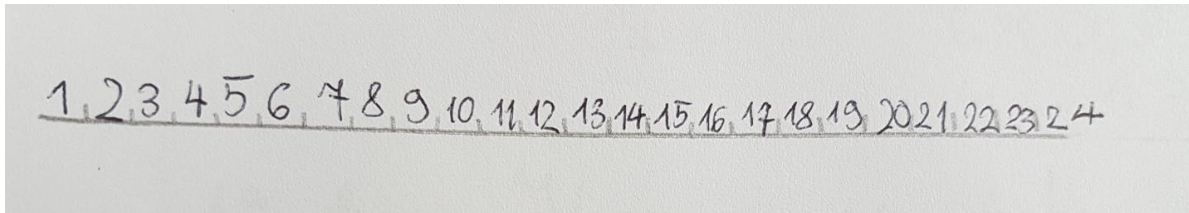 1 2 3 4 5 6 7 8 9 10 11 12 13 14 15 16 17 18 19 20 21 22 23 24